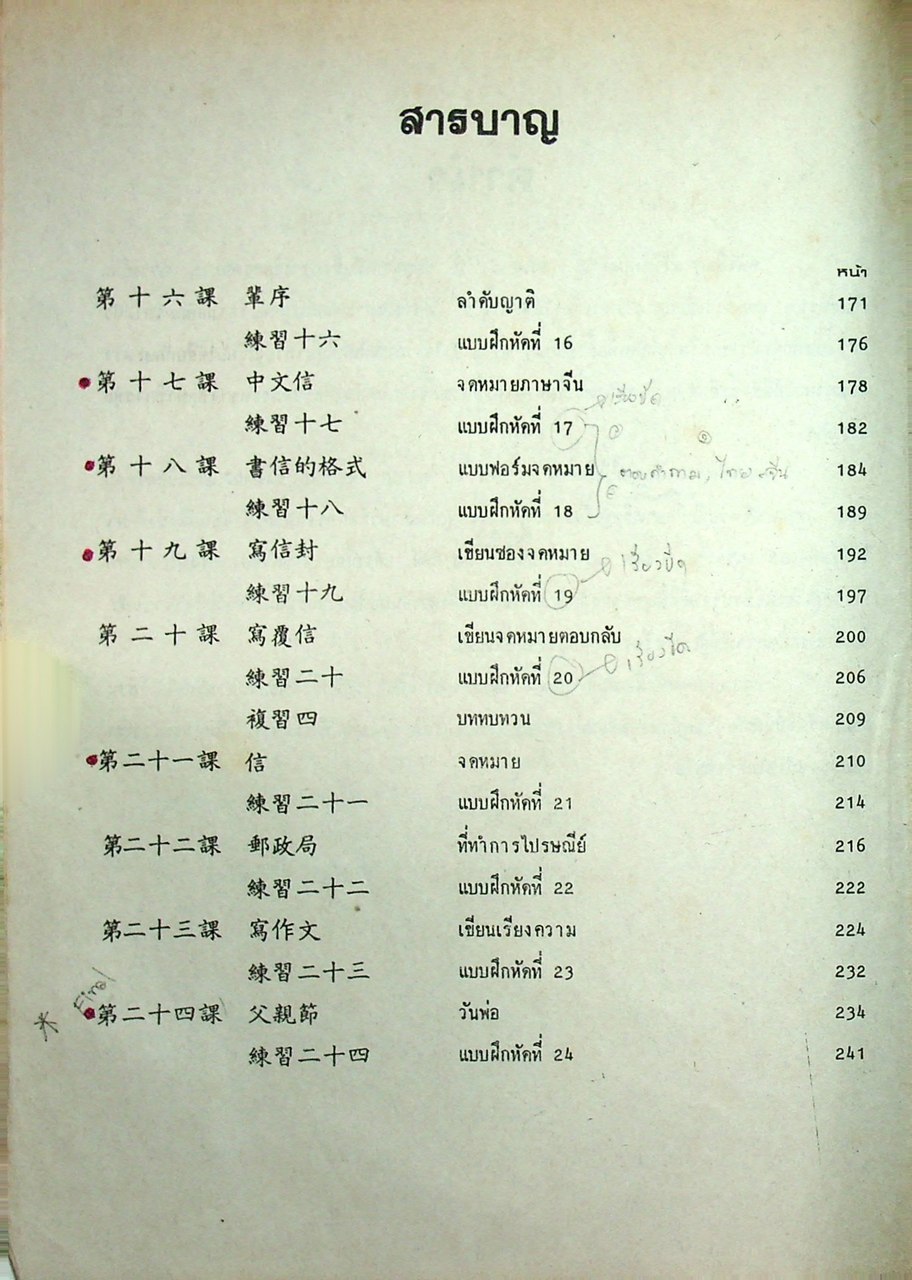 สารบาญ
หน้า
第十六課 輩序 ลำดับญาติ 171
練習十六 แบบฝึกหัดที่ 16 176
第十七課 中文信 จดหมายภาษาจีน 178
練習十七 แบบฝึกหัดที่ 17 182
第十八課 書信的格式 แบบฟอร์มจดหมาย 184
ตอบคำถาม, ไทย จีน
練習十八 แบบฝึกหัดที่ 18 189
第十九課 寫信封 เขียนซองจดหมาย 192
練習十九 แบบฝึกหัดที่ 19 197
第二十課 寫覆信 เขียนจดหมายตอบกลับ 200
練習二十 แบบฝึกหัดที่ 20 206
複習四 บททบทวน 209
第二十一課 信 จดหมาย 210
練習二十一 แบบฝึกหัดที่ 21 214
第二十二課 郵政局 ที่ทำการไปรษณีย์ 216
練習二十二 แบบฝึกหัดที่ 22 222
第二十三課 寫作文 เขียนเรียงความ 224
練習二十三 แบบฝึกหัดที่ 23 232
Final
第二十四課 父親節 วันพ่อ 234
練習二十四 แบบฝึกหัดที่ 24 241